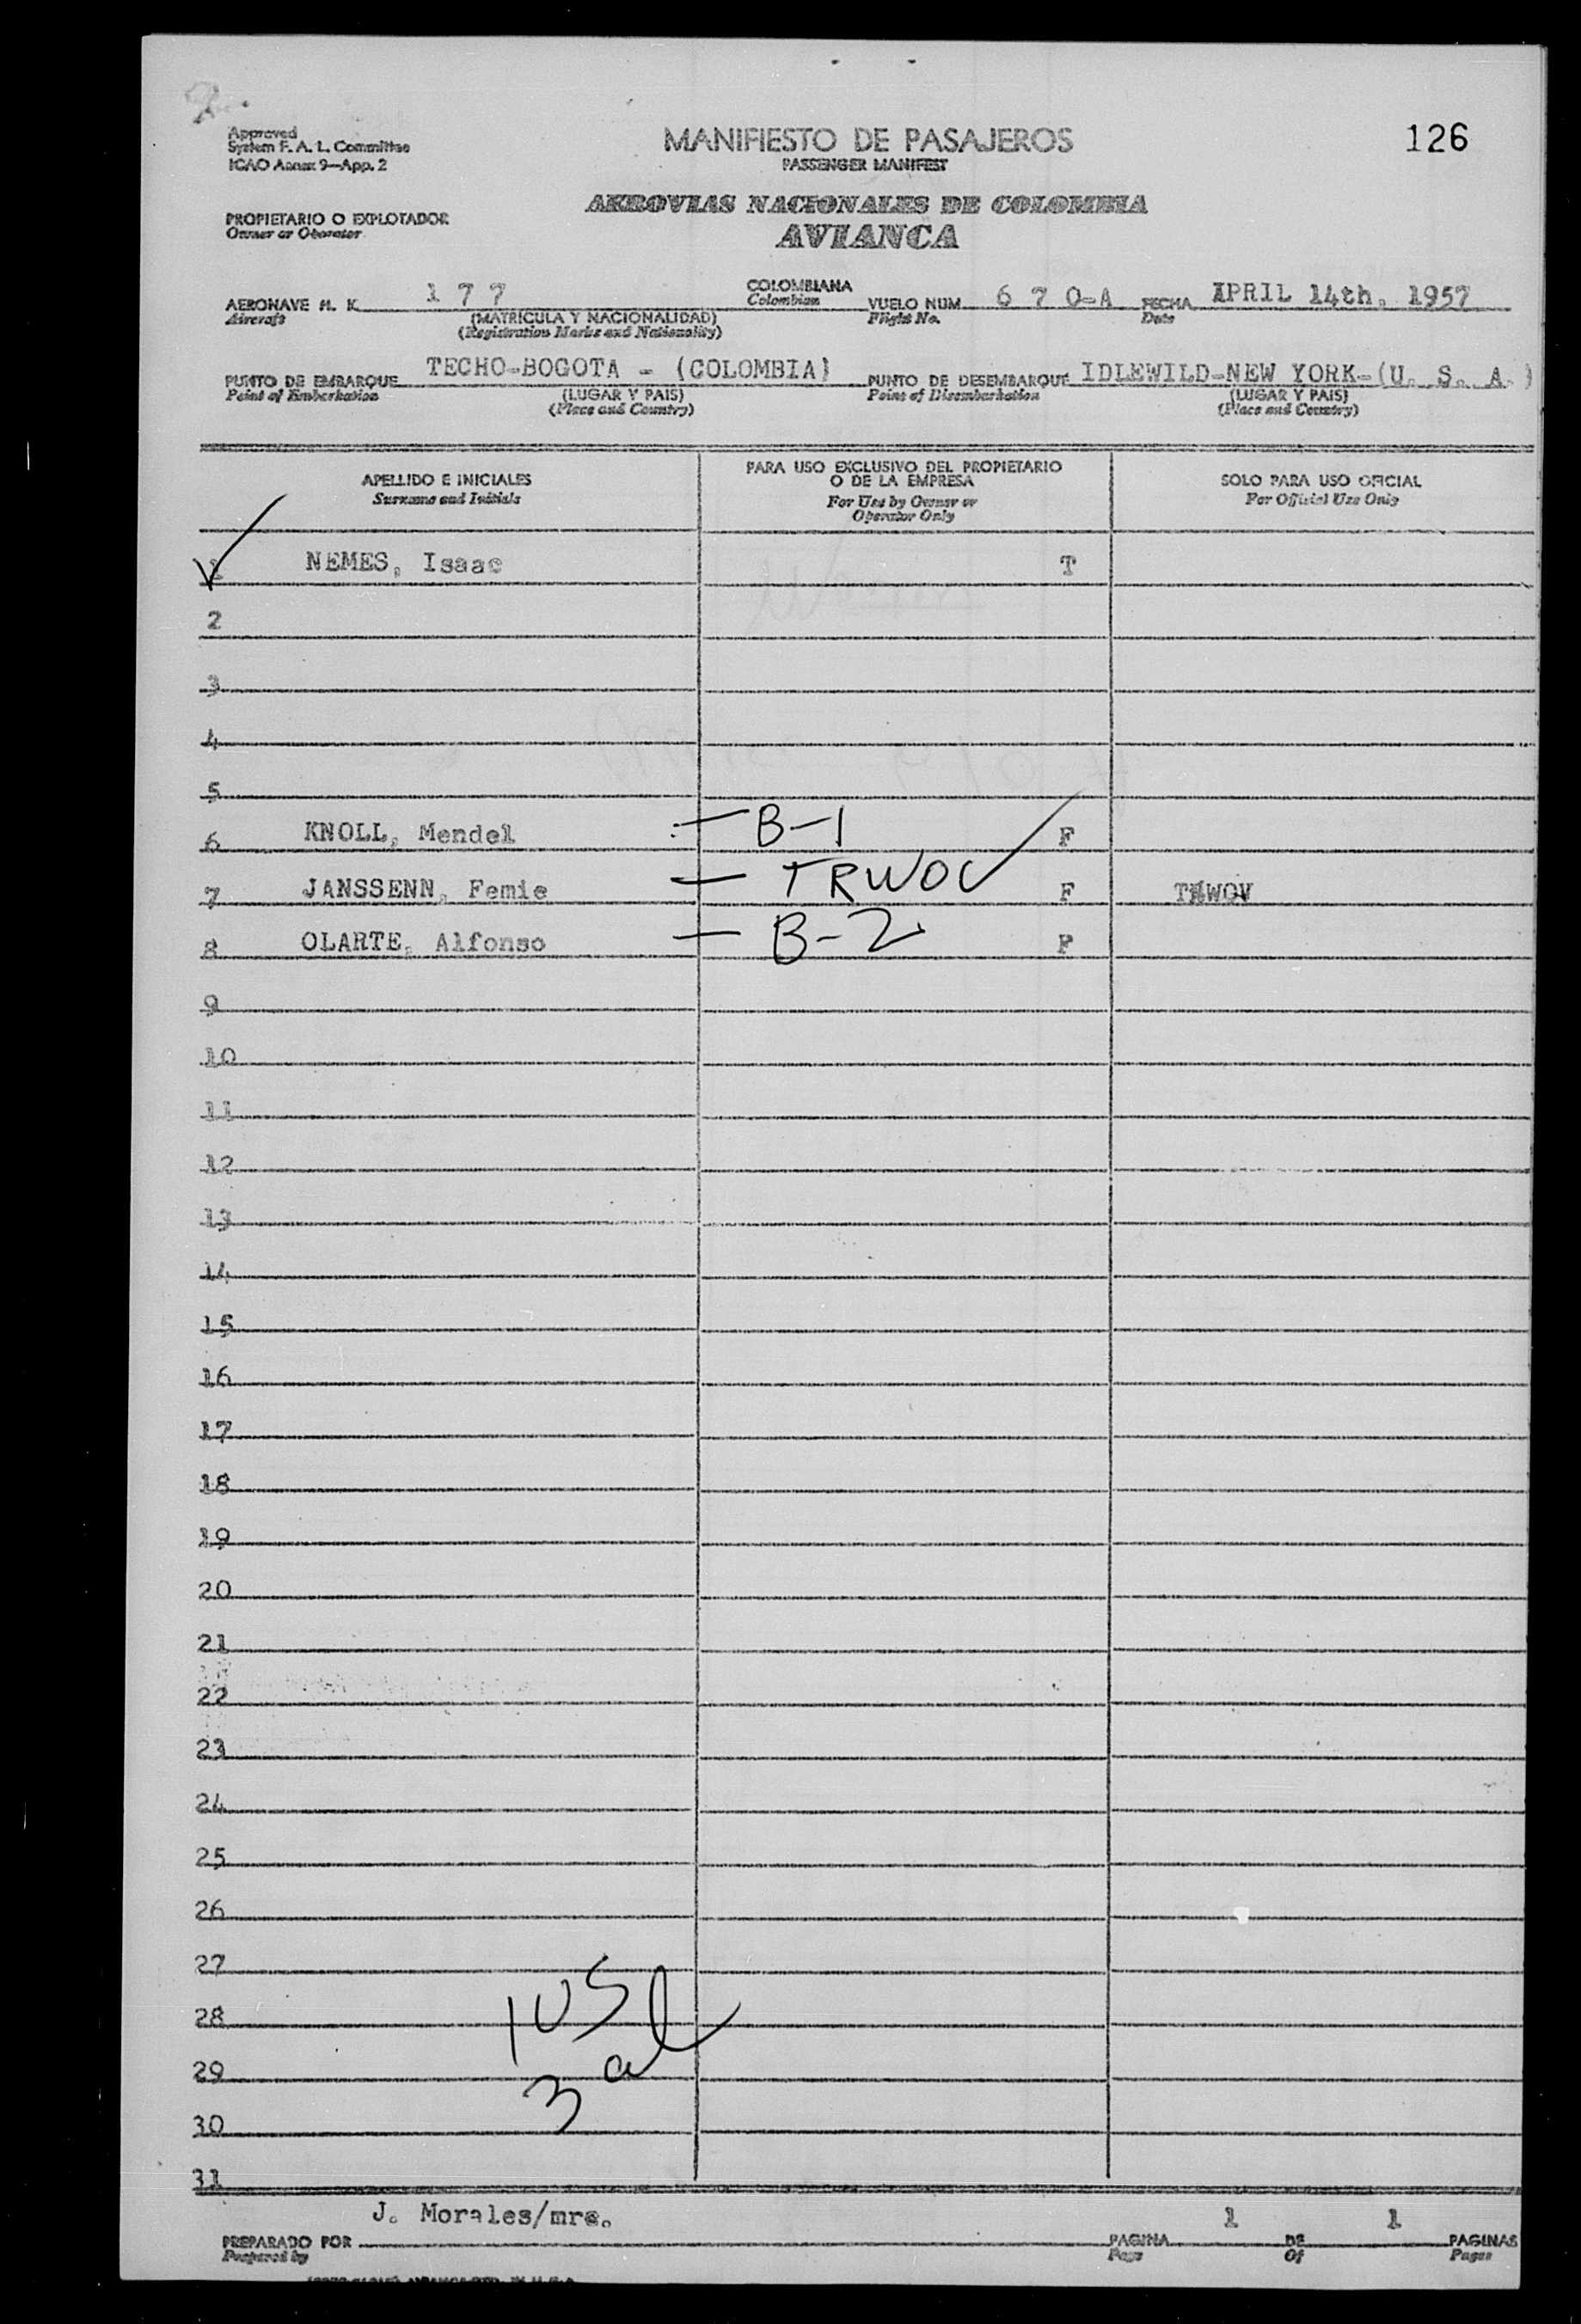 Approved
System F. A. L. Committee
ICAO Annex 9—App. 2
MANIFIESTO DE PASAJEROS
PASSENGER MANIFEST
126
PROPIETARIO O EXPLOTADOR
Owner or Operator
AEROVIAS NACIONALES DE COLOMBIA
AVIANCA
AERONAVE H. K. 1 7 7 COLOMBIANA VUELO NUM. 6 7 0-A FECHA APRIL 14th, 1957
Aircraft (MATRICULA Y NACIONALIDAD) Colombian Flight No. Date
(Registration Marks and Nationality)
PUNTO DE EMBARQUE TECHO-BOGOTA - (COLOMBIA) PUNTO DE DESEMBARQUE IDLEWILD-NEW YORK-(U. S. A.)
Point of Embarkation (LUGAR Y PAIS) Point of Disembarkation (LUGAR Y PAIS)
(Place and Country) (Place and Country)
APELLIDO E INICIALES PARA USO EXCLUSIVO DEL PROPIETARIO O DE LA EMPRESA SOLO PARA USO OFICIAL
Surname and Initials For Use by Owner or Operator Only For Official Use Only
1 NEMES, Isaac T
2
3
4
5
6 KNOLL, Mendel — B-1 F
7 JANSSENN, Femie — TRWOV F TRWOV
8 OLARTE, Alfonso — B-2 F
9
10
11
12
13
14
15
16
17
18
19
20
21
22
23
24
25
26
27
28 1 US
29 3 al
30
31
J. Morales/mrs. 1 1
PREPARADO POR PAGINA DE PAGINAS
Prepared by Page Of Pages